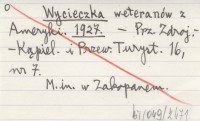 Wycieczka weteranów z
Ameryki. 1927. – Prz. Zdroj.-
-Kąpiel. i Przew. Turyst. 16,
nr 7.
M.in. w Zakopanem.